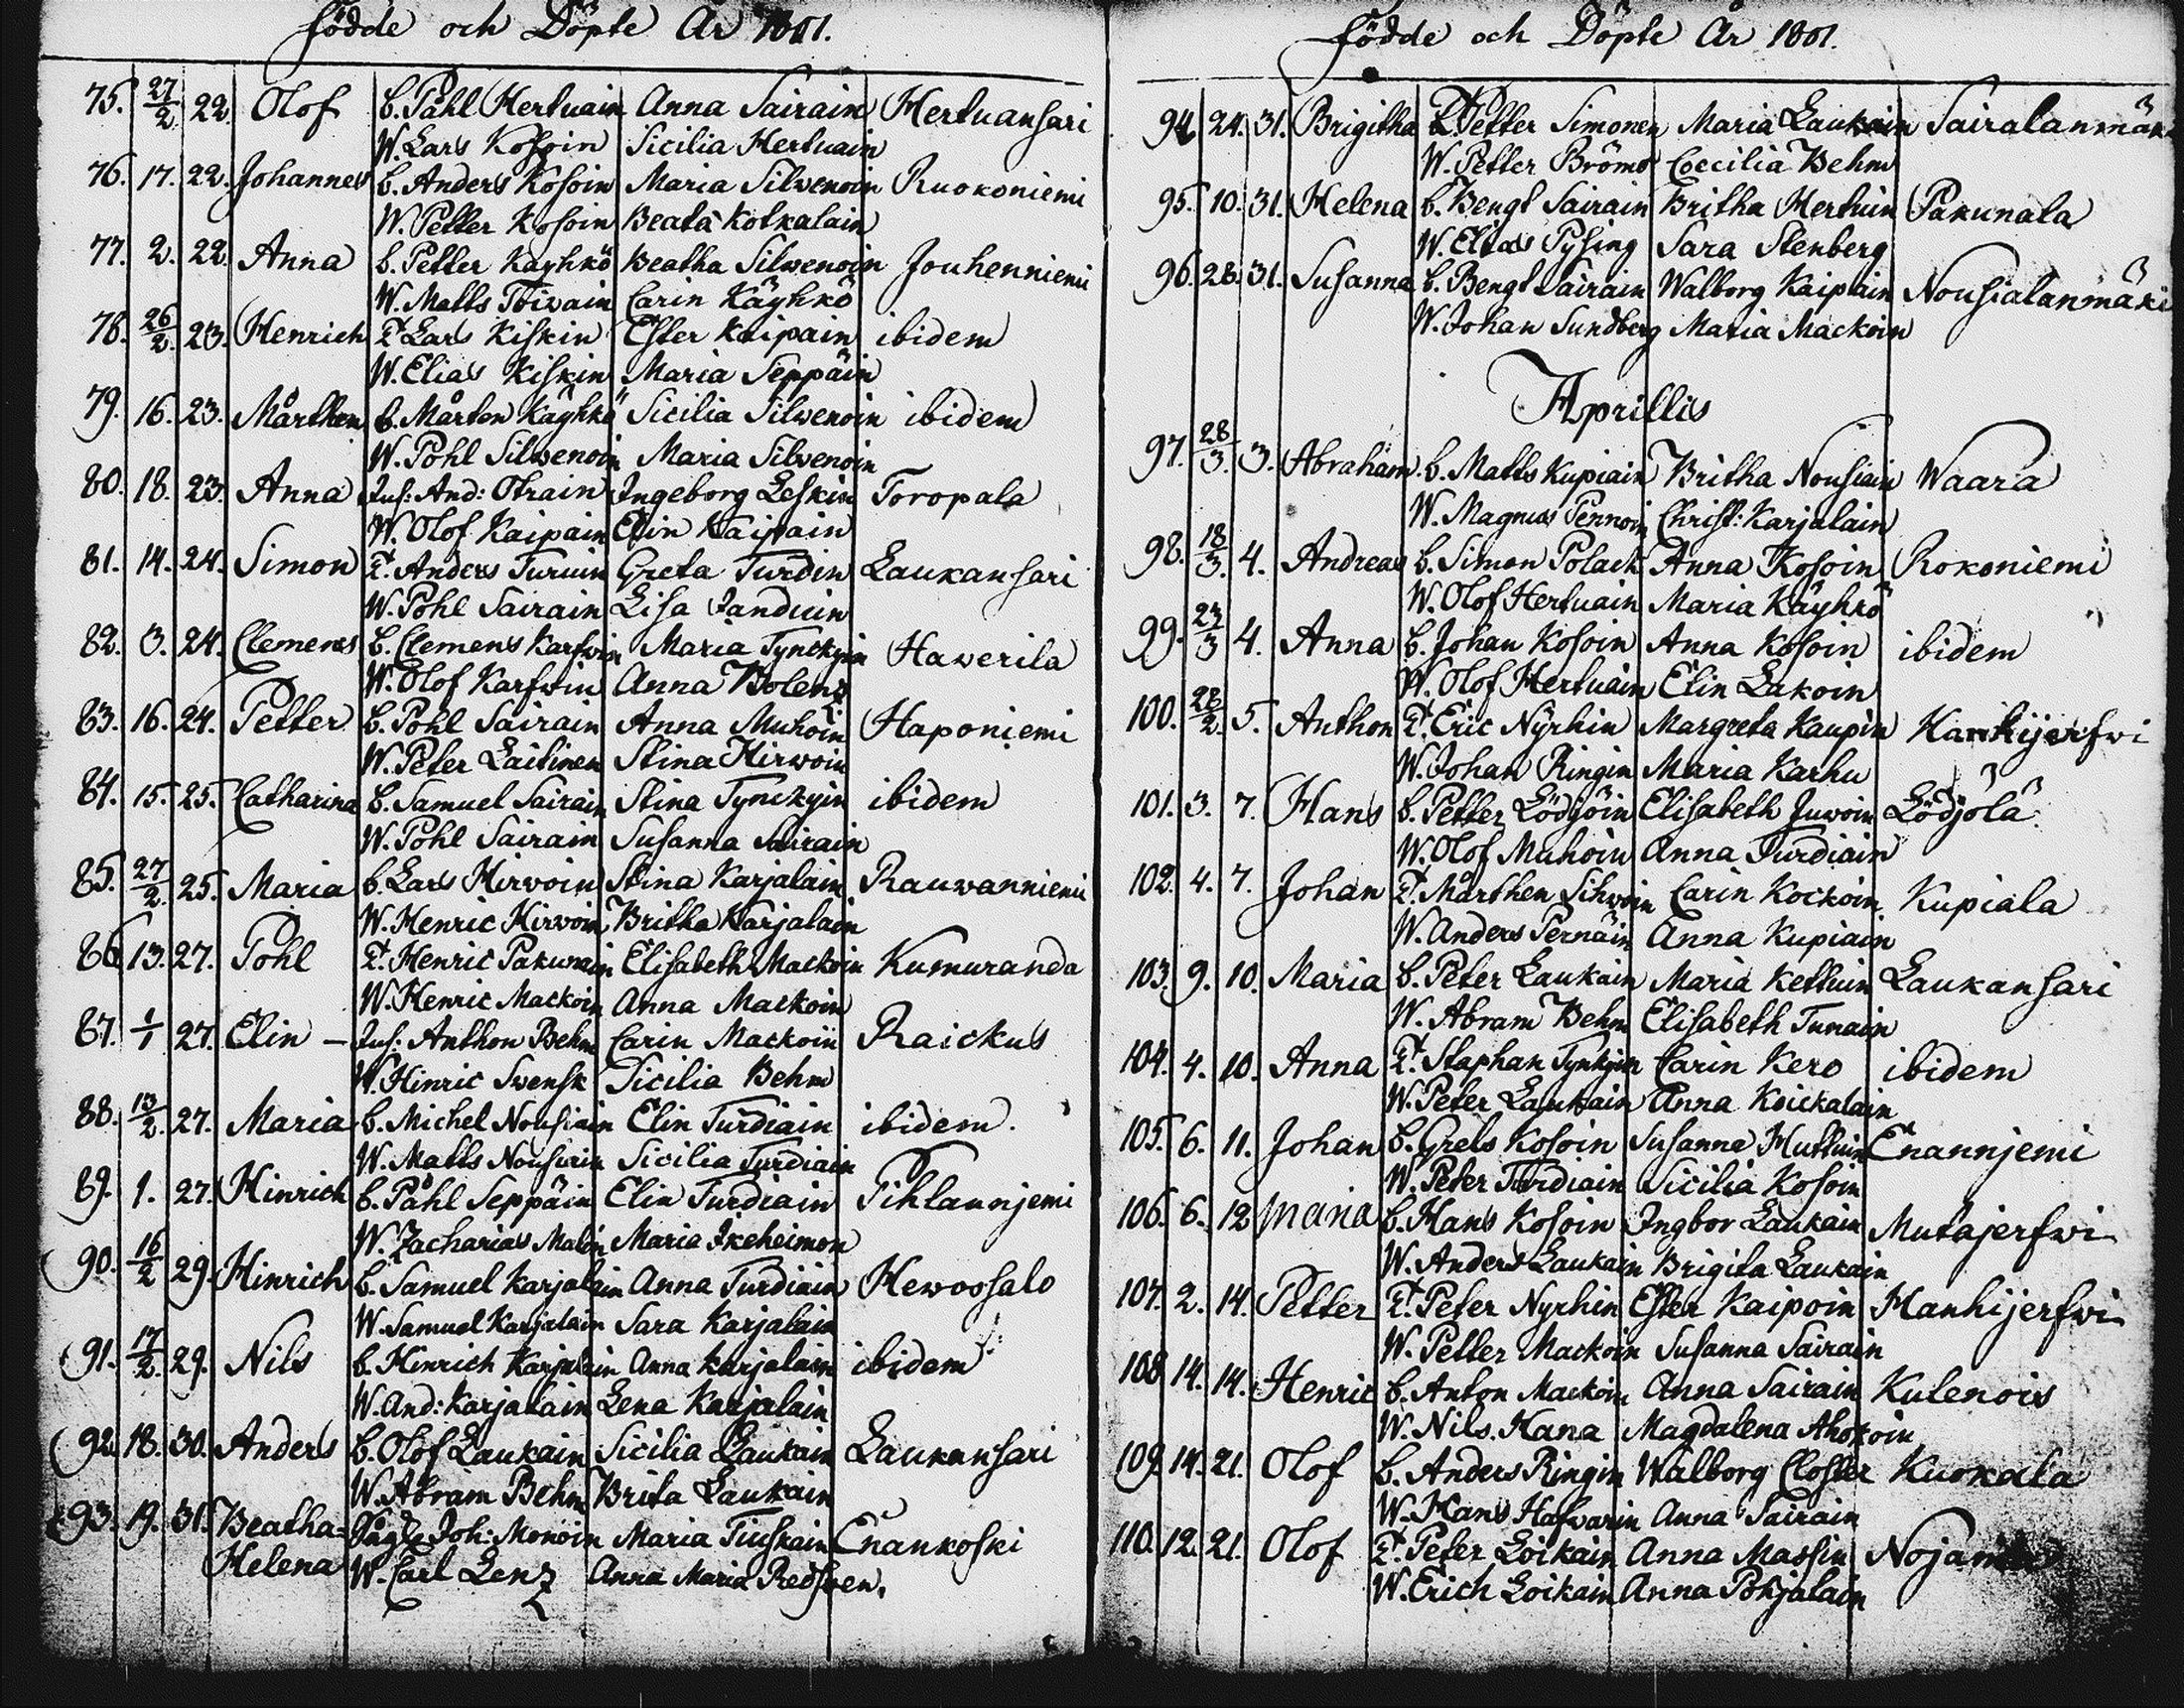 Födde och Döpte År 1801.
75. 27/2 22. Olof b. Påhl Hertuain Anna Sairain Hertuansari
W. Lars Kosoin Sicilia Hertuain
76. 17. 22. Johannes b. Anders Kosoin Maria Silvenoin Ruokoniemi
W. Petter Kosoin Beata Kotkalain
77. 2. 22. Anna b. Petter Käyhkö Beatha Silvenoin Jouhenniemi
W. Matts Toiwain Carin Käyhkö
78. 26/2. 23. Henrich T. Lars Kiskin Ester Kaipain ibidem
W. Elias Kiskin Maria Seppäin
79. 16. 23. Mårthen b. Mårten Käyhkö Sicilia Silwenoin ibidem
W. Pohl Silvenoin Maria Silvenoin
80. 18. 23. Anna Jnh: And: Otrain Ingeborg Leskin Toropala
W. Olof Kaipain Elin Kaipain
81. 14. 24. Simon T. Anders Turuin Greta Turdin Laukansari
W. Pohl Sairain Lisa
82. 3. 24. Clemens b. Clemens Karfwin Maria Tynckyin Hawerila
W. Olof Karfwin Anna Bolenz
83. 16. 24. Petter b. Pohl Sairain Anna Muhoin Haponiemi
W. Peter Laitinen Stina Hirwoin
84. 15. 25. Catharina b. Samuel Sairain Stina Tynckyin ibidem
W. Pohl Sairain Susanna Sairain
85. 27/2. 25. Maria b. Lars Hirvoin Stina Karjalain Rauwanniemi
W. Henric Hirvoin Britha Karjalain
86. 13. 27. Pohl T. Henric Pakunain Elisabeth Mackoin Kumuranda
W. Henric Mackoin Anna Mackoin
87. 1/1 27. Elin – Jnh: Anthon Behm Carin Mackoin Raickus
W. Hinric Swensk Sicilia Behm
88. 13/2. 27. Maria b. Michel Nousiain Elin Turdiain ibidem.
W. Matts Nousiain Sicilia Turdiain
89. 1. 27. Hinrich b. Påhl Seppäin Elin Turdiain Pihlannjemi
W. Zacharias Malin Maria Ikeheimon
90. 16/2 29. Hinrich b. Samuel Karjalain Anna Turdiain Hewossalo
W. Samuel Karjalain Sara Karjalain
91. 17/2. 29. Nils b. Hinrich Karjalain Anna Karjalain ibidem
W. And: Karjalain Lena Karjalain
92. 18. 30. Anders b. Olof Laukain Sicilia Laukain Laukansari
W. Abram Behm Brita Laukain
93. 19. 31. Beatha= Joh: Monoin Maria Tiuskain Enankoski
Helena W. Carl Lenz Anna Maria Redsven.
Födde och Döpte År 1801.
94 24. 31. Brigitha T. Petter Simonen Maria Laukain Sairalanmäki
W. Petter Brömo Coecilia Behm
95. 10. 31. Helena b. Bengt Sairain Britha Hertuin Pakunala
W. Elias Pysing Sara Stenberg
96. 28. 31. Susanna b. Bengt Sairain Walborg Kaipiain Nousialanmäki
W. Johan Sundberg Maria Mackoin
Aprillis
97. 28/3. 3. Abraham b. Matts Kupiain Britha Nousiain Waara
W. Magnus Pernoin Christ: Karjalain
98. 18/3. 4. Andreas b. Simon Polack Anna Kosoin Rokoniemi
W. Olof Hertuain Maria Käyhkö
99. 23/3 4. Anna b. Johan Kosoin Anna Kosoin ibidem
W. Olof Hertuain Elin Lakoin
100. 28/2. 5. Anthon T. Eric Nyrhin Margreta Kaupin Kankijerfwi
W. Johan Ringin Maria Karhu
101. 3. 7. Hans b. Petter Lödjöin Elisabeth Juwoin Lödjölä
W. Olof Muhoin Anna Turdiain
102. 4. 7. Johan T. Mårthen Sihvoin Carin Kockoin Kupiala
W. Anders Pernäin Anna Kupiain
103. 9. 10. Maria b. Peter Laukain Maria Kettuin Laukansari
W. Abram Behm Elisabeth Tunain
104. 4. 10. Anna T. Staphan Tynkyin Carin Kero ibidem
W. Peter Laukain Anna Koickalain
105. 6. 11. Johan b. Grels Kosoin Susanna Huttuin Enannjemi
W. Peter Turdiain Sicilia Kosoin
106. 6. 12 Maria b. Hans Kosoin Ingbor Laukain Mutajerfwi
W. Anders Laukain Brigita Laukain
107. 2. 14. Petter T. Peter Nyrhin Ester Kaipoin Hanhijerfwi
W. Petter Mackoin Susanna Sairain
108 14. 14. Henric b. Anton Mackoin Anna Sairain Kulenois
W. Nils Hana Magdalena Ahokoin
109. 14. 21. Olof b. Anders Ringin Walborg Closter Kuokala
W. Hans Hafwarin Anna Sairain
110. 12. 21. Olof T. Peter Loikain Anna Massin
W. Erich Loikain Anna Pohjalain